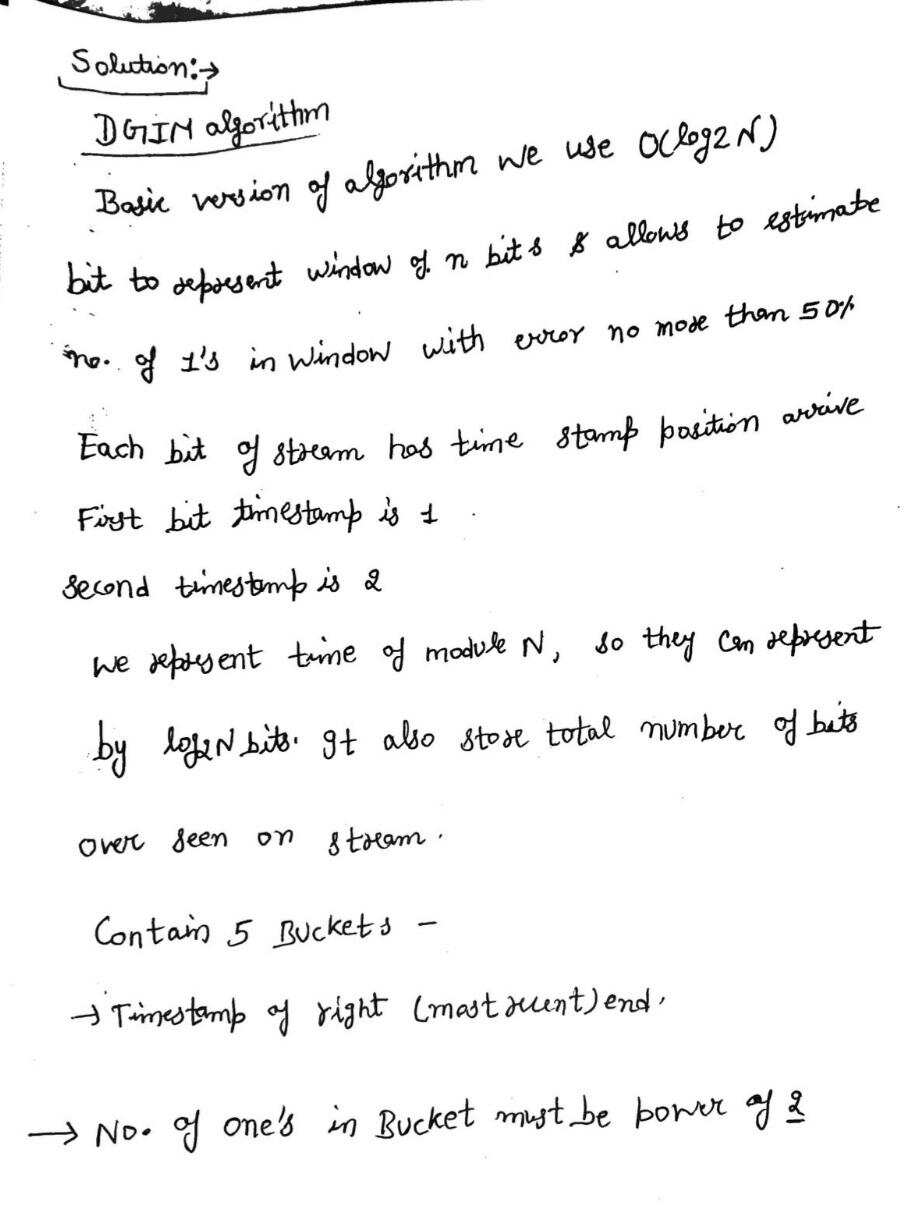 Solution:→
DGIM algorithm
Basic version of algorithm we use O(log2 N)
bit to represent window of n bits & allows to estimate
no. of 1's in window with error no more than 50%
Each bit of stream has time stamp position arrive
First bit timestamp is 1
second timestamp is 2
we represent time of module N, so they can represent
by log2N bits. It also store total number of bits
over seen on stream.
Contain 5 Buckets -
→ Timestamp of right (most recent) end.
→ No. of one's in Bucket must be power of 2